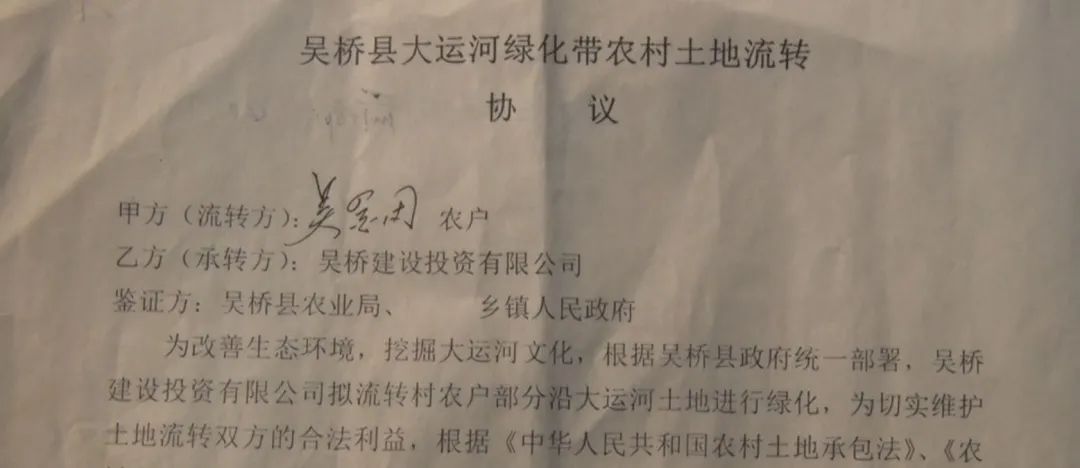 吴桥县大运河绿化带农村土地流转
协 议
甲方（流转方）：吴 农户
乙方（承转方）：吴桥建设投资有限公司
鉴证方：吴桥县农业局、 乡镇人民政府
为改善生态环境，挖掘大运河文化，根据吴桥县政府统一部署，吴桥
建设投资有限公司拟流转村农户部分沿大运河土地进行绿化，为切实维护
土地流转双方的合法利益，根据《中华人民共和国农村土地承包法》、《农